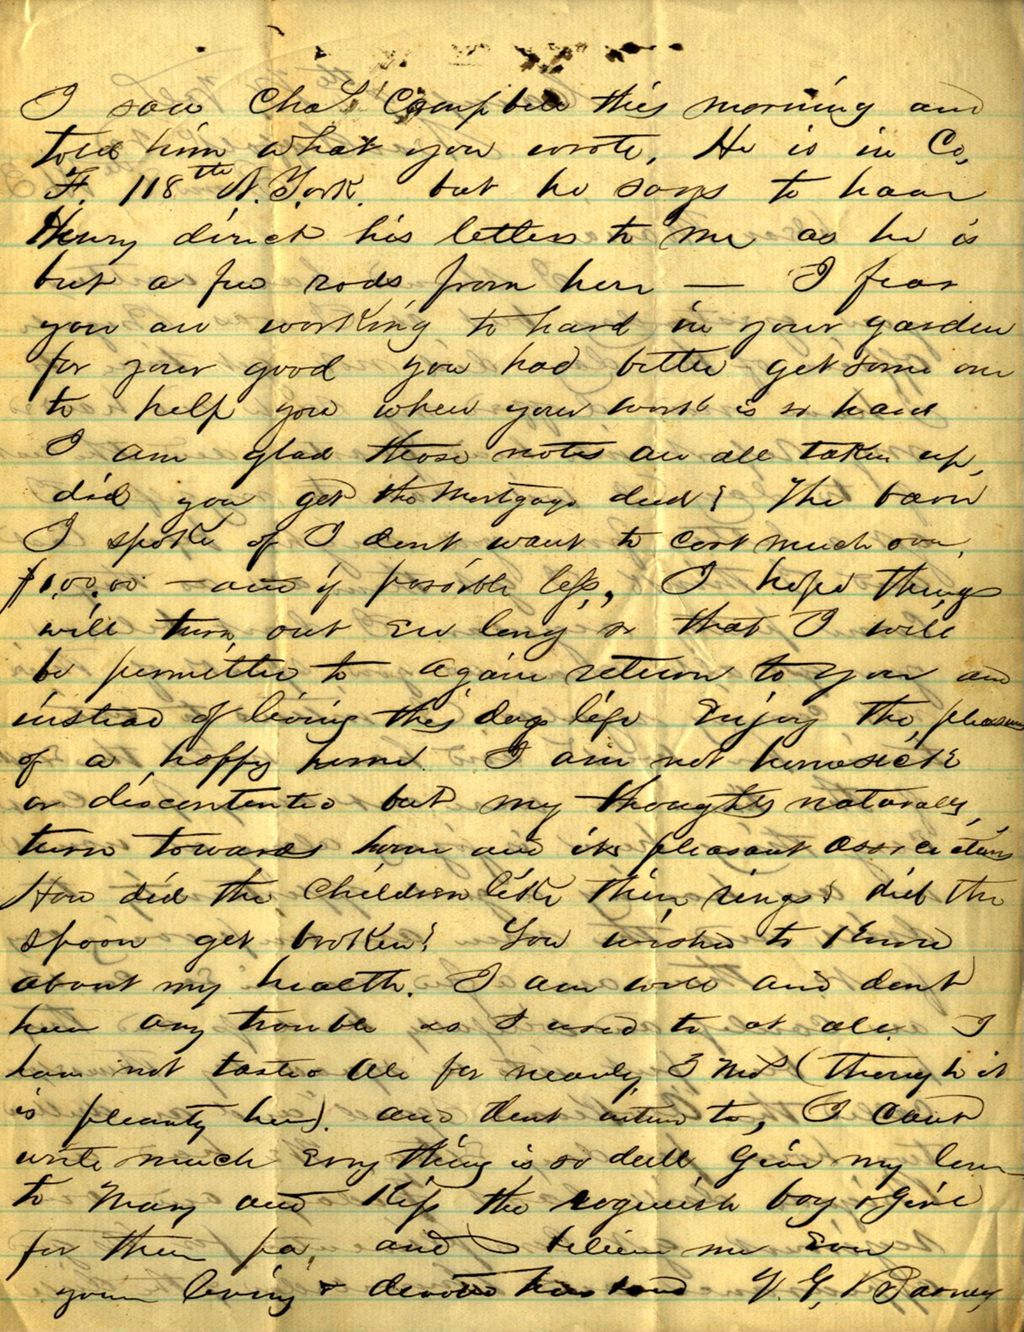 I saw Chas Campbell this morning and
told him what you wrote. He is in Co,
F. 118th N. York. but he says to have
Henry direct his letters to me as he is
but a few rods from here — I fear
you are working to hard in your garden
for your good you had better get some one
to help you when your work is so hard
I am glad those notes are all taken up,
did you get the Mortgage deed? The barn
I spoke of I dont want to cost much over
$100.00 — and if possible less, I hope things
will turn out ere long so that I will
be permitted to again return to you and
instead of living this dogs life Enjoy the pleasures
of a happy home. I am not homesick
or discontented but my thoughts naturally
turn towards home and its pleasant associations
How did the Children like their rings? did the
spoon get broken? You wished to know
about my health. I am well and dont
have any trouble as I used to at all. I
have not tasted Ale for nearly 3 Mos (though it
is pleanty here). and dont intend to, I cant
write much Every thing is so dull Give my love
to Mary and Kiss the roguish boy & Girl
for their pa, and believe me Ever
your loving & devoted husband V. G. Barney